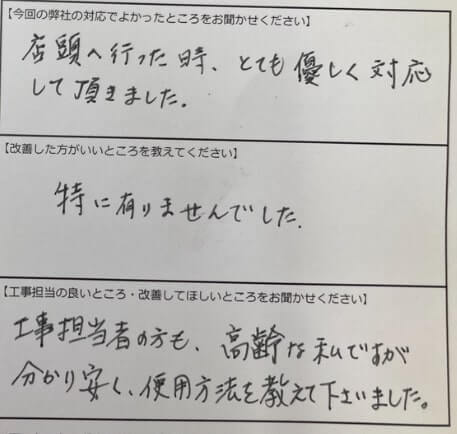 【今回の弊社の対応でよかったところをお聞かせください】
店頭へ行った時、とても優しく対応
して頂きました。
【改善した方がいいところを教えてください】
特に有りませんでした.
【工事担当の良いところ・改善してほしいところをお聞かせください】
工事担当者の方も、高齢な私ですが
分かり安く、使用方法を教えて下さいました。